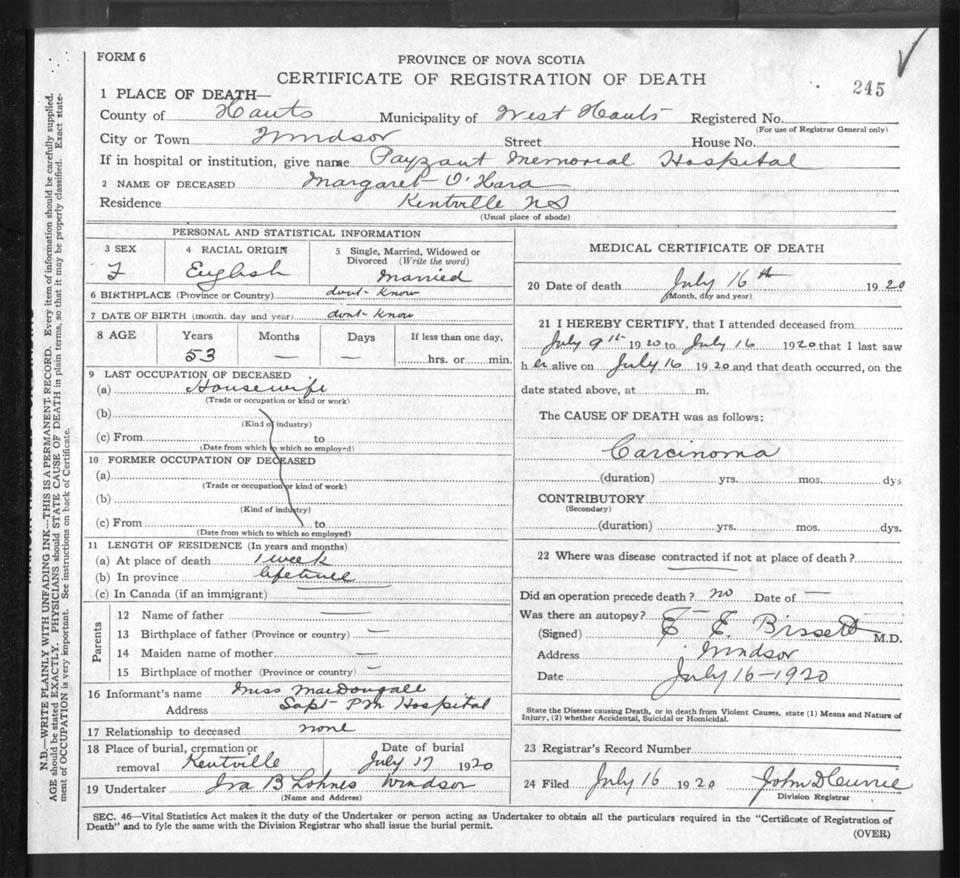 FORM 6
PROVINCE OF NOVA SCOTIA
CERTIFICATE OF REGISTRATION OF DEATH
245
1 PLACE OF DEATH—
County of Hants Municipality of West Hants Registered No.
(For use of Registrar General only)
City or Town Windsor Street House No.
If in hospital or institution, give name Payzant Memorial Hospital
2 NAME OF DECEASED Margaret O'Hara
Residence Kentville NS
(Usual place of abode)
PERSONAL AND STATISTICAL INFORMATION
3 SEX 4 RACIAL ORIGIN 5 Single, Married, Widowed or
Divorced (Write the word)
F English Married
6 BIRTHPLACE (Province or Country) dont Know
7 DATE OF BIRTH (month, day and year) dont Know
8 AGE Years Months Days If less than one day,
53 — — hrs. or min.
9 LAST OCCUPATION OF DECEASED
(a) Housewife
(Trade or occupation or kind or work)
(b)
(Kind of industry)
(c) From to
(Date from which to which so employed)
10 FORMER OCCUPATION OF DECEASED
(a)
(Trade or occupation or kind of work)
(b)
(Kind of industry)
(c) From to
(Date from which to which so employed)
11 LENGTH OF RESIDENCE (In years and months)
(a) At place of death 1 week
(b) In province lifetime
(c) In Canada (if an immigrant)
Parents
12 Name of father —
13 Birthplace of father (Province or country) —
14 Maiden name of mother —
15 Birthplace of mother (Province or country) —
16 Informant's name Miss MacDougall
Address Supt PM Hospital
17 Relationship to deceased none
18 Place of burial, cremation or Date of burial
removal Kentville July 17 1920
19 Undertaker Ira B Lohnes Windsor
(Name and Address)
MEDICAL CERTIFICATE OF DEATH
20 Date of death July 16th 1920
(Month, day and year)
21 I HEREBY CERTIFY, that I attended deceased from
July 9th 1920 to July 16 1920 that I last saw
her alive on July 16 1920 and that death occurred, on the
date stated above, at m.
The CAUSE OF DEATH was as follows:
Carcinoma
(duration) yrs. mos. dys
CONTRIBUTORY
(Secondary)
(duration) yrs. mos. dys.
22 Where was disease contracted if not at place of death?
Did an operation precede death? no Date of —
Was there an autopsy? —
(Signed) E E Bissett M.D.
Address Windsor
Date July 16-1920
State the Disease causing Death, or in death from Violent Causes, state (1) Means and Nature of
Injury, (2) whether Accidental, Suicidal or Homicidal.
23 Registrar's Record Number
24 Filed July 16 1920 John D Currie
Division Registrar
SEC. 46—Vital Statistics Act makes it the duty of the Undertaker or person acting as Undertaker to obtain all the particulars required in the "Certificate of Registration of
Death" and to fyle the same with the Division Registrar who shall issue the burial permit.
(OVER)
N.B.—WRITE PLAINLY WITH UNFADING INK—THIS IS A PERMANENT RECORD. Every item of information should be carefully supplied.
AGE should be stated EXACTLY. PHYSICIANS should STATE CAUSE OF DEATH in plain terms, so that it may be properly classified. Exact state-
ment of OCCUPATION is very important. See instructions on back of Certificate.